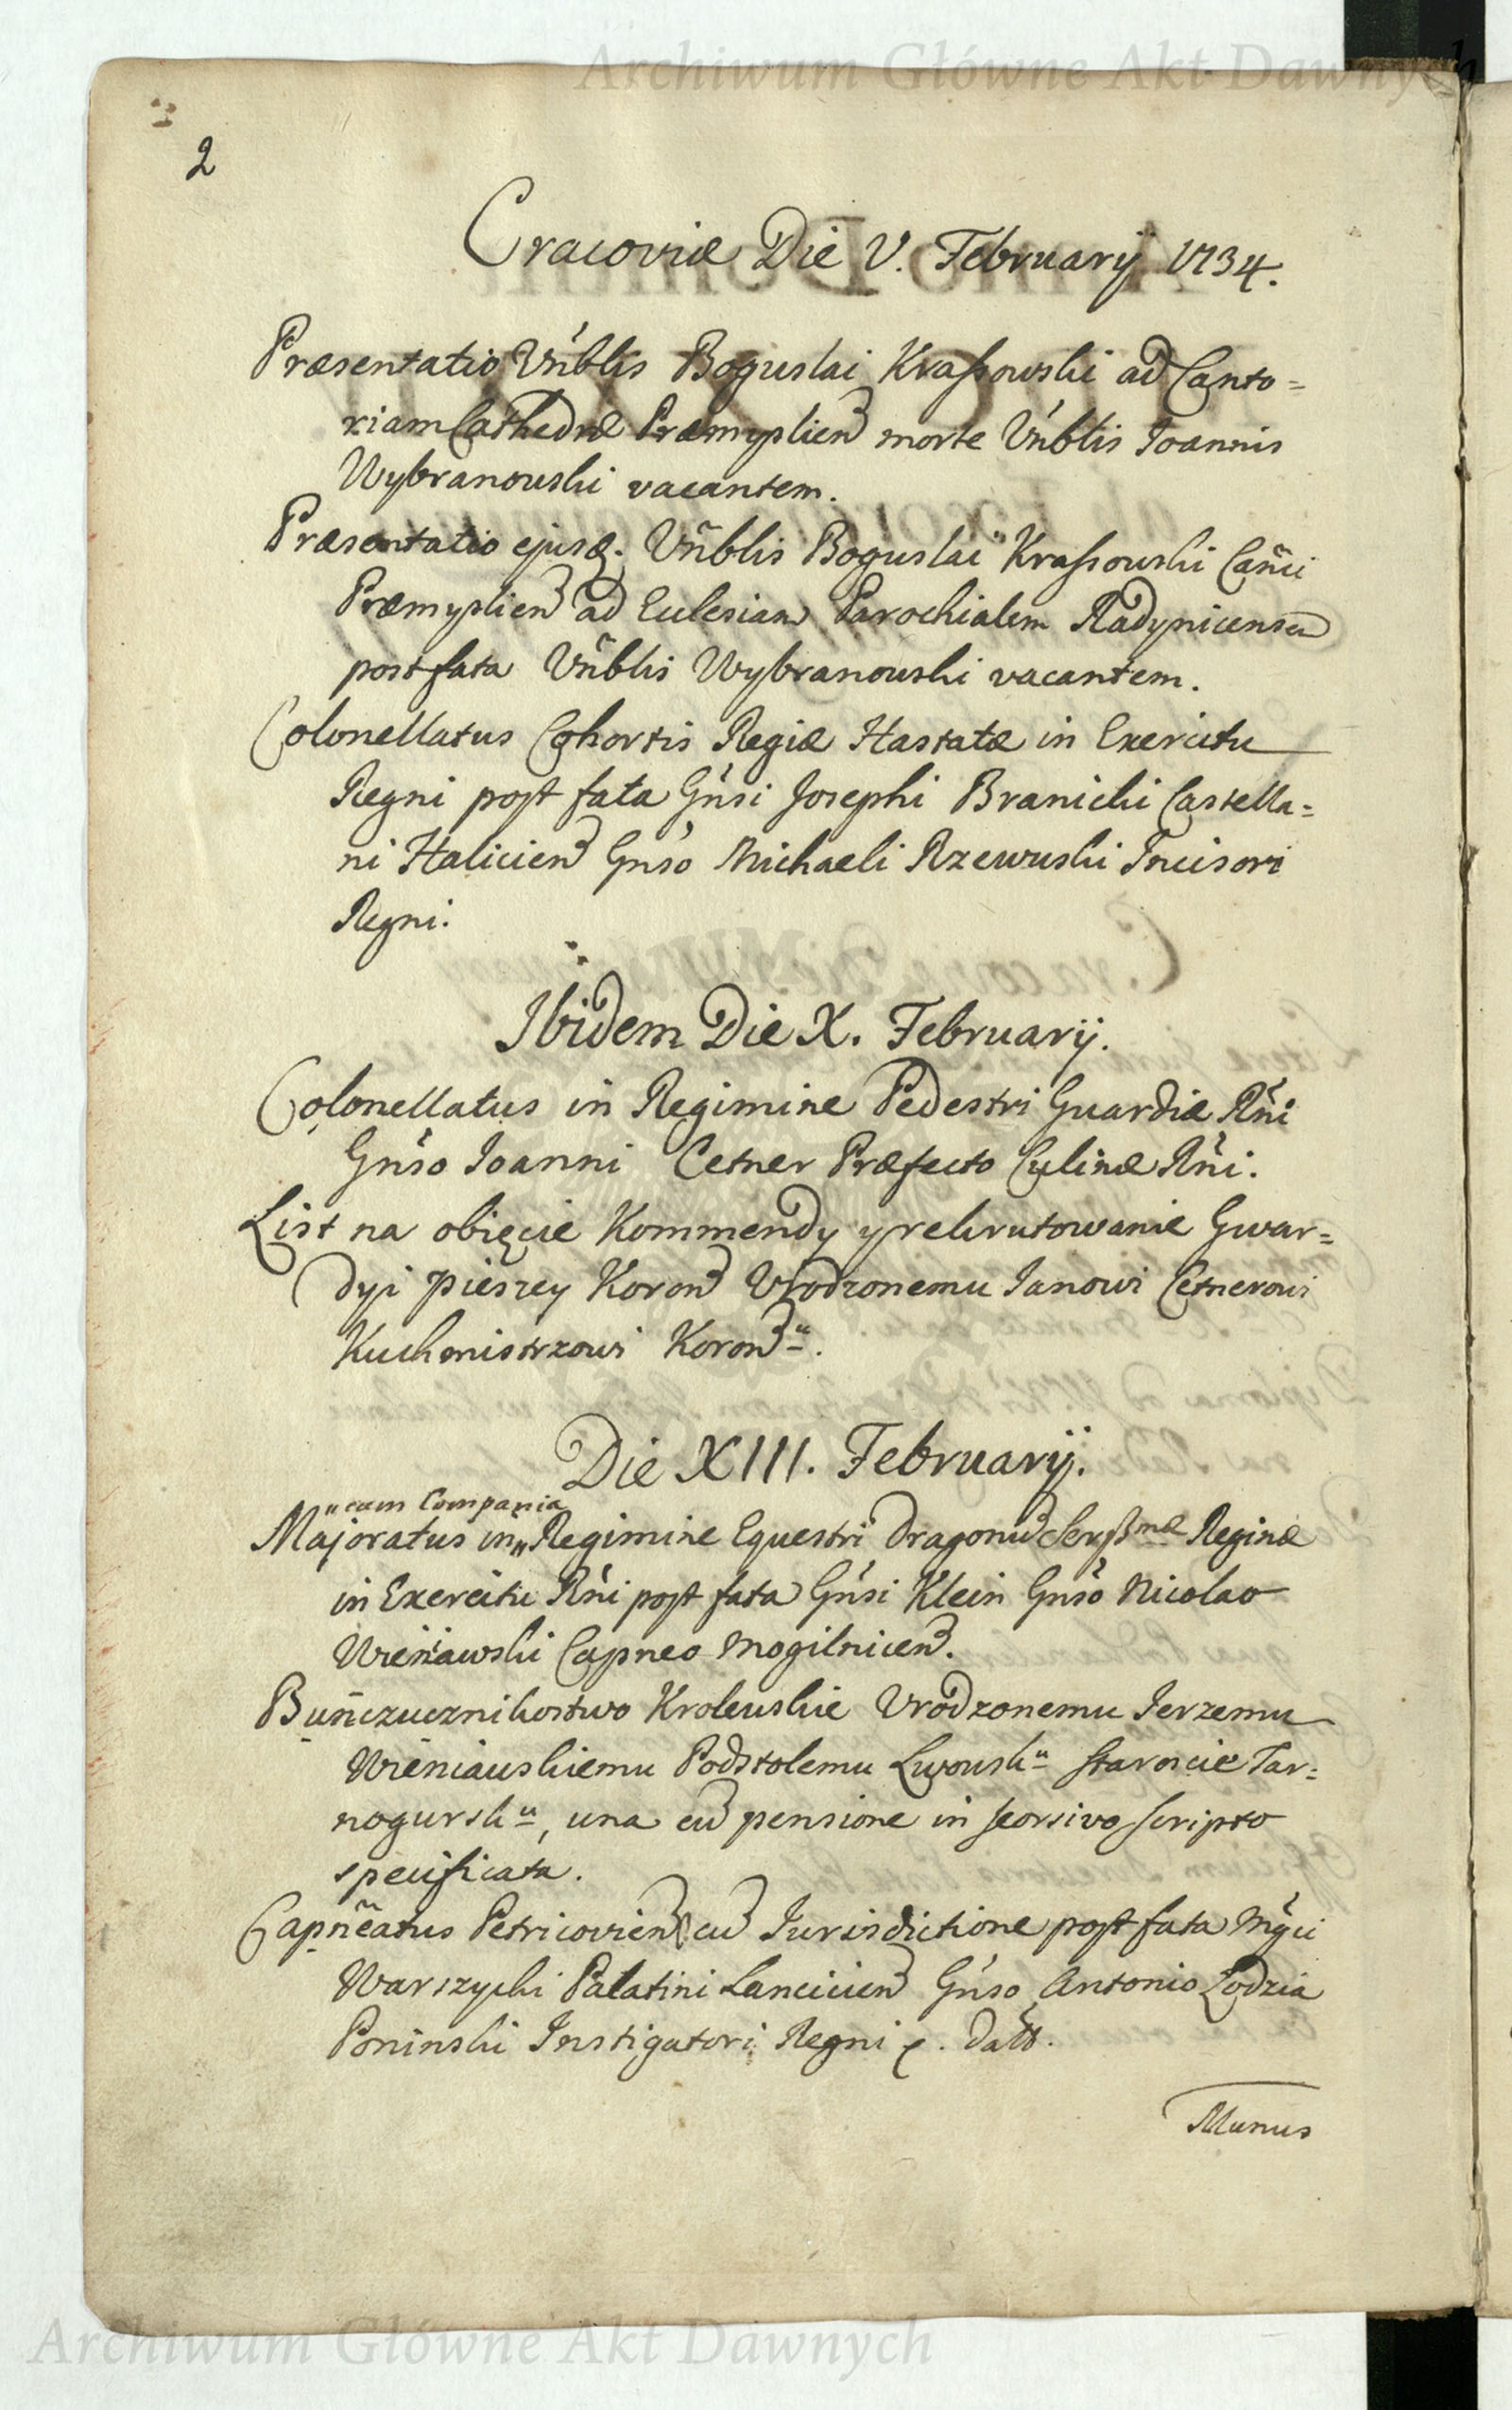 Archiwum Główne Akt Dawnych
2
Cracoviæ Die V. Februarij 1734.
Præsentatio Vńblis Boguslai Kraſsowski ad Canto=
riam Cathedræ Præmyslien morte Vńblis Joannis
Wybranowski vacantem.
Præsentatio ejusq. Vñblis Boguslai Kraſsowski Cañci
Præmyslien ad Ecclesiam Parochialem Radynicensem
post fata Vñblis Wybranowski vacantem.
Colonellatus Cohortis Regiæ Hastatæ in Exercitu
Regni post fata Gńsi Josephi Branicki Castella=
ni Halicien Gńso Michaeli Rzewuski Incisori
Regni.
Ibidem Die X. Februarij.
Colonellatus in Regimine Pedestri Guardiæ Rńi
Gńso Joanni Cetner Præfecto Culinæ Rńi.
List na obięcie Kommendy y rekrutowanie Gwar=
dyi pieszey Koron Vrodzonemu Janowi Cetnerowi
Kuchmistrzowi Koronu.
Die XIII. Februarij.
cum Compania
Majoratus in Regimine Equestri Dragonu Serſsmæ Reginæ
in Exercitu Rńi post fata Gńsi Klein Gńso Nicolao
Wieniawski Capneo Mogilnicen.
Buńczucznikostwo Krolewskie Vrodzonemu Jerzemu
Wieniawskiemu Podstolemu Lwowsku Staroscie Tar=
nogursku, una cu pensione in seorsivo scripto
specificata.
Capñeatus Petricovien cu Jurisdictione post fata Mgci
Warszycki Palatini Lancicien Gńso Antonio Łodzia
Poninski Instigatori Regni c. datt.
Munus
Archiwum Główne Akt Dawnych